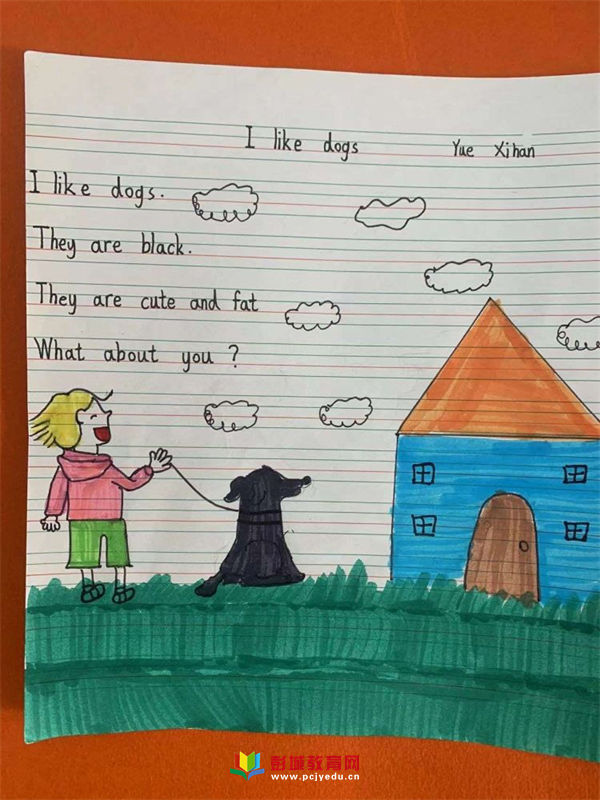 I like dogs Yue Xihan
I like dogs.
They are black.
They are cute and fat
What about you ?
彭城教育网
www.pcjyedu.cn